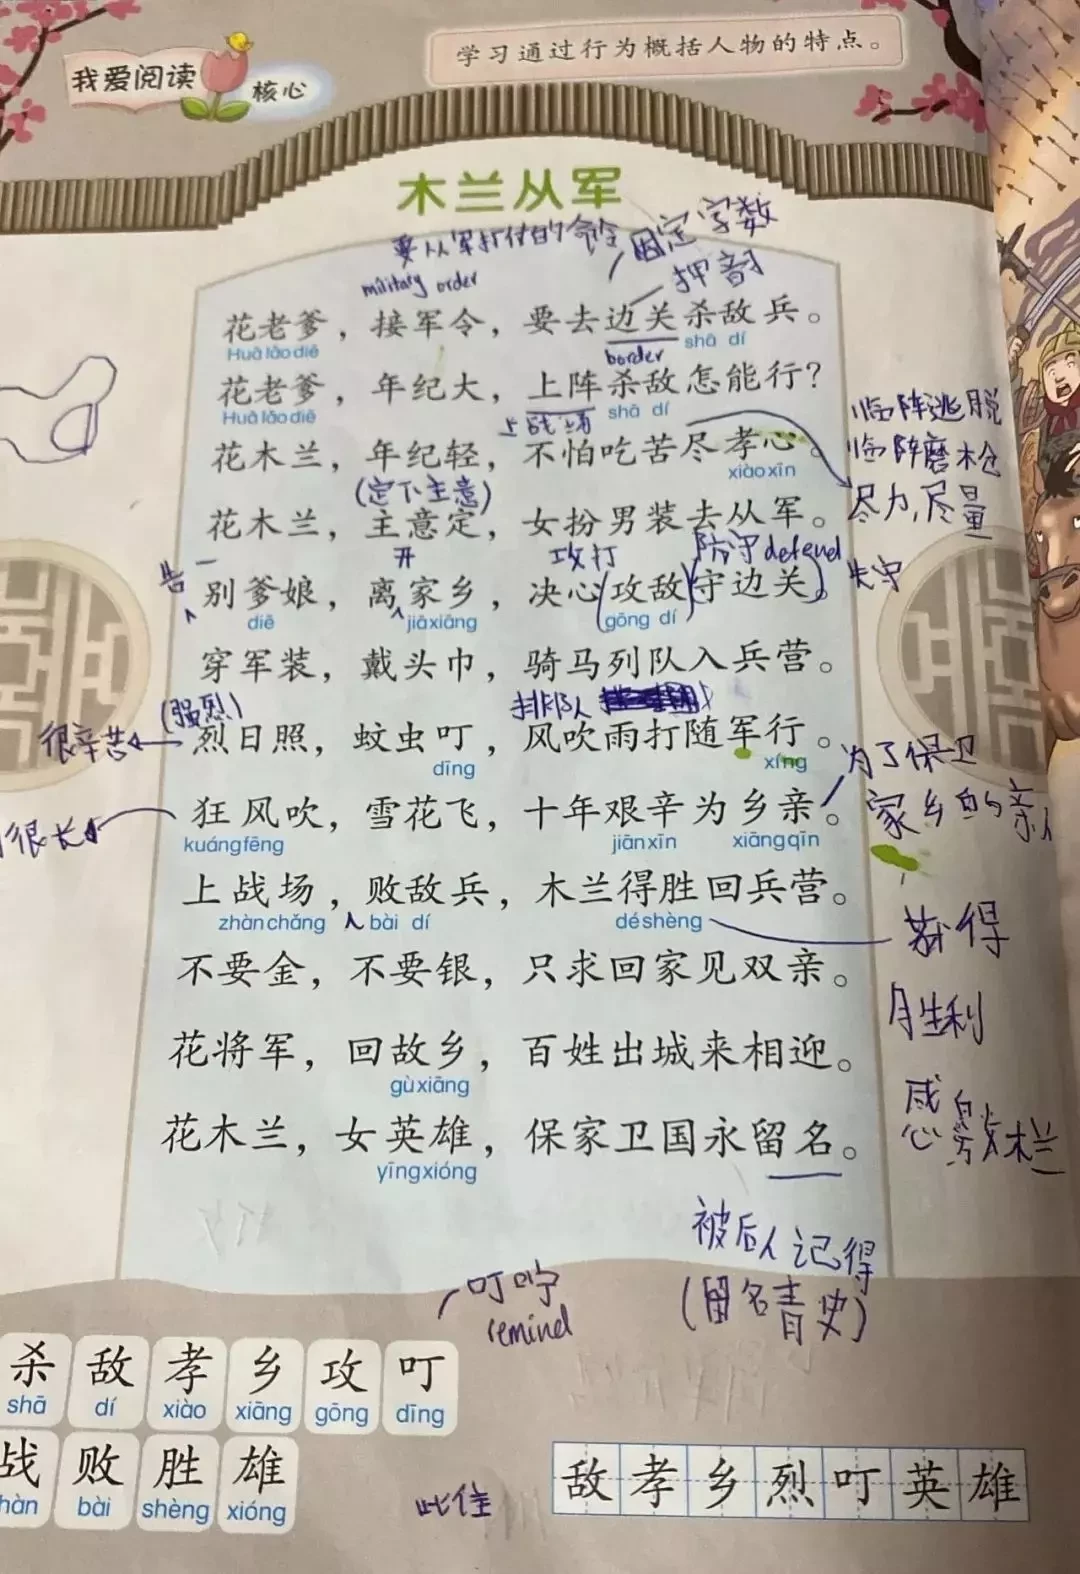 学习通过行为概括人物的特点。
我爱阅读
核心
木兰从军
要从军打仗的命令
固定字数
押韵
military order
花老爹，接军令，要去边关杀敌兵。
Huā lǎo diē
shā dí
border
花老爹，年纪大，上阵杀敌怎能行？
Huā lǎo diē
shā dí
上战场
临阵逃脱
花木兰，年纪轻，不怕吃苦尽孝心。
xiàoxīn
临阵磨枪
(定下主意)
尽力，尽量
花木兰，主意定，女扮男装去从军。
开
攻打
防守defend
失守
告
别爹娘，离家乡，决心(攻敌)(守边关)。
diē
jiāxiāng
gōng dí
穿军装，戴头巾，骑马列队入兵营。
(强烈)
排队
很辛苦
烈日照，蚊虫叮，风吹雨打随军行。
dīng
xíng
为了保卫
家乡的亲人
狂风吹，雪花飞，十年艰辛为乡亲。
kuángfēng
jiānxīn
xiāngqīn
很长
上战场，败敌兵，木兰得胜回兵营。
zhànchǎng
bài dí
déshèng
获得
胜利
不要金，不要银，只求回家见双亲。
花将军，回故乡，百姓出城来相迎。
gùxiāng
花木兰，女英雄，保家卫国永留名。
yīngxióng
被后人记得
(留名青史)
叮咛
remind
杀 敌 孝 乡 攻 叮
shā dí xiào xiāng gōng dīng
战 败 胜 雄
hàn bài shèng xióng
敌孝乡烈叮英雄